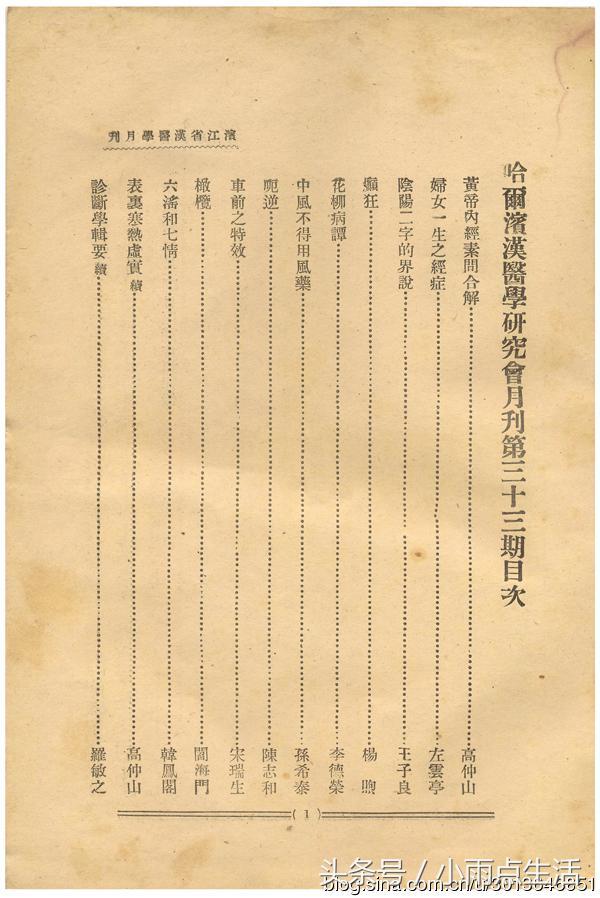 濱江省漢醫學月刊
哈爾濱漢醫學研究會月刊第三十三期目次
黃帝內經素問合解 高仲山
婦女一生之經症 左雲亭
陰陽二字的界說 王子良
癲狂 楊煦
花柳病譚 李德榮
中風不得用風藥 孫希泰
呃逆 陳志和
車前之特效 宋瑞生
橄欖 閻海門
六滛和七情 韓鳳閣
表裏寒熱虛實 續 高仲山
診斷學輯要 續 羅敏之
( 1 )
头条号 / 小雨点生活
blog.sina.com.cn/u/3013046651